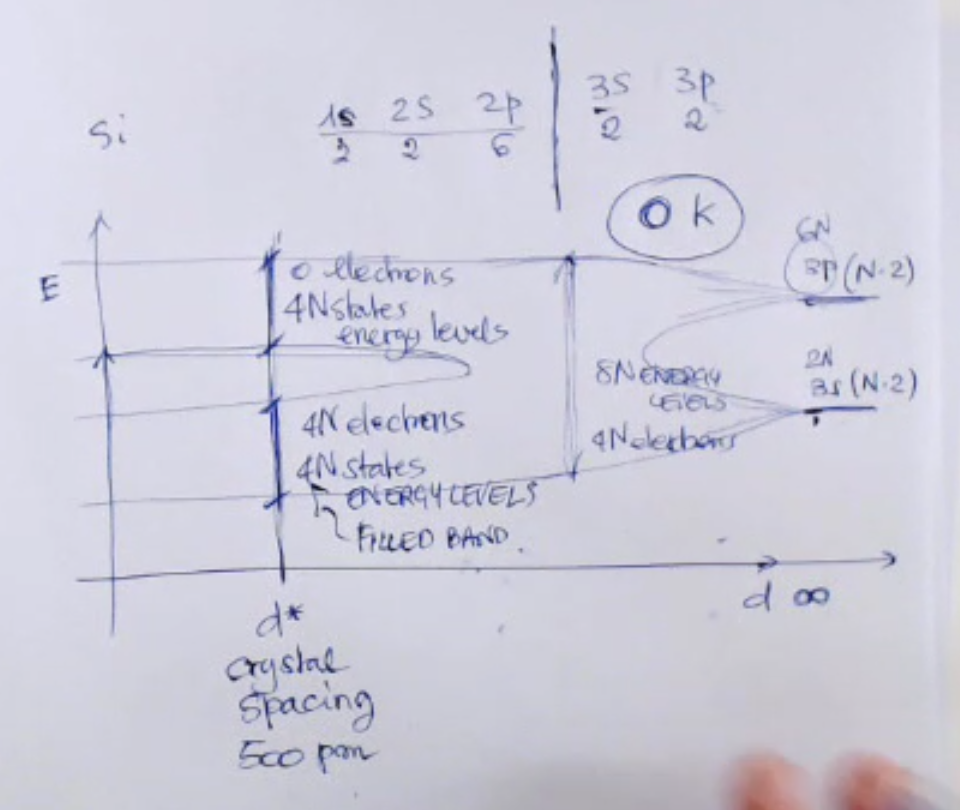 Si
1s 2s 2p 3s 3p
2 2 6 2 2
0 K
E
0 electrons
4N states
energy levels
6N
3p (N·2)
8N ENERGY
LEVELS
4N electrons
2N
3s (N·2)
4N electrons
4N states
ENERGY LEVELS
FILLED BAND.
d ∞
d*
crystal
spacing
500 pm